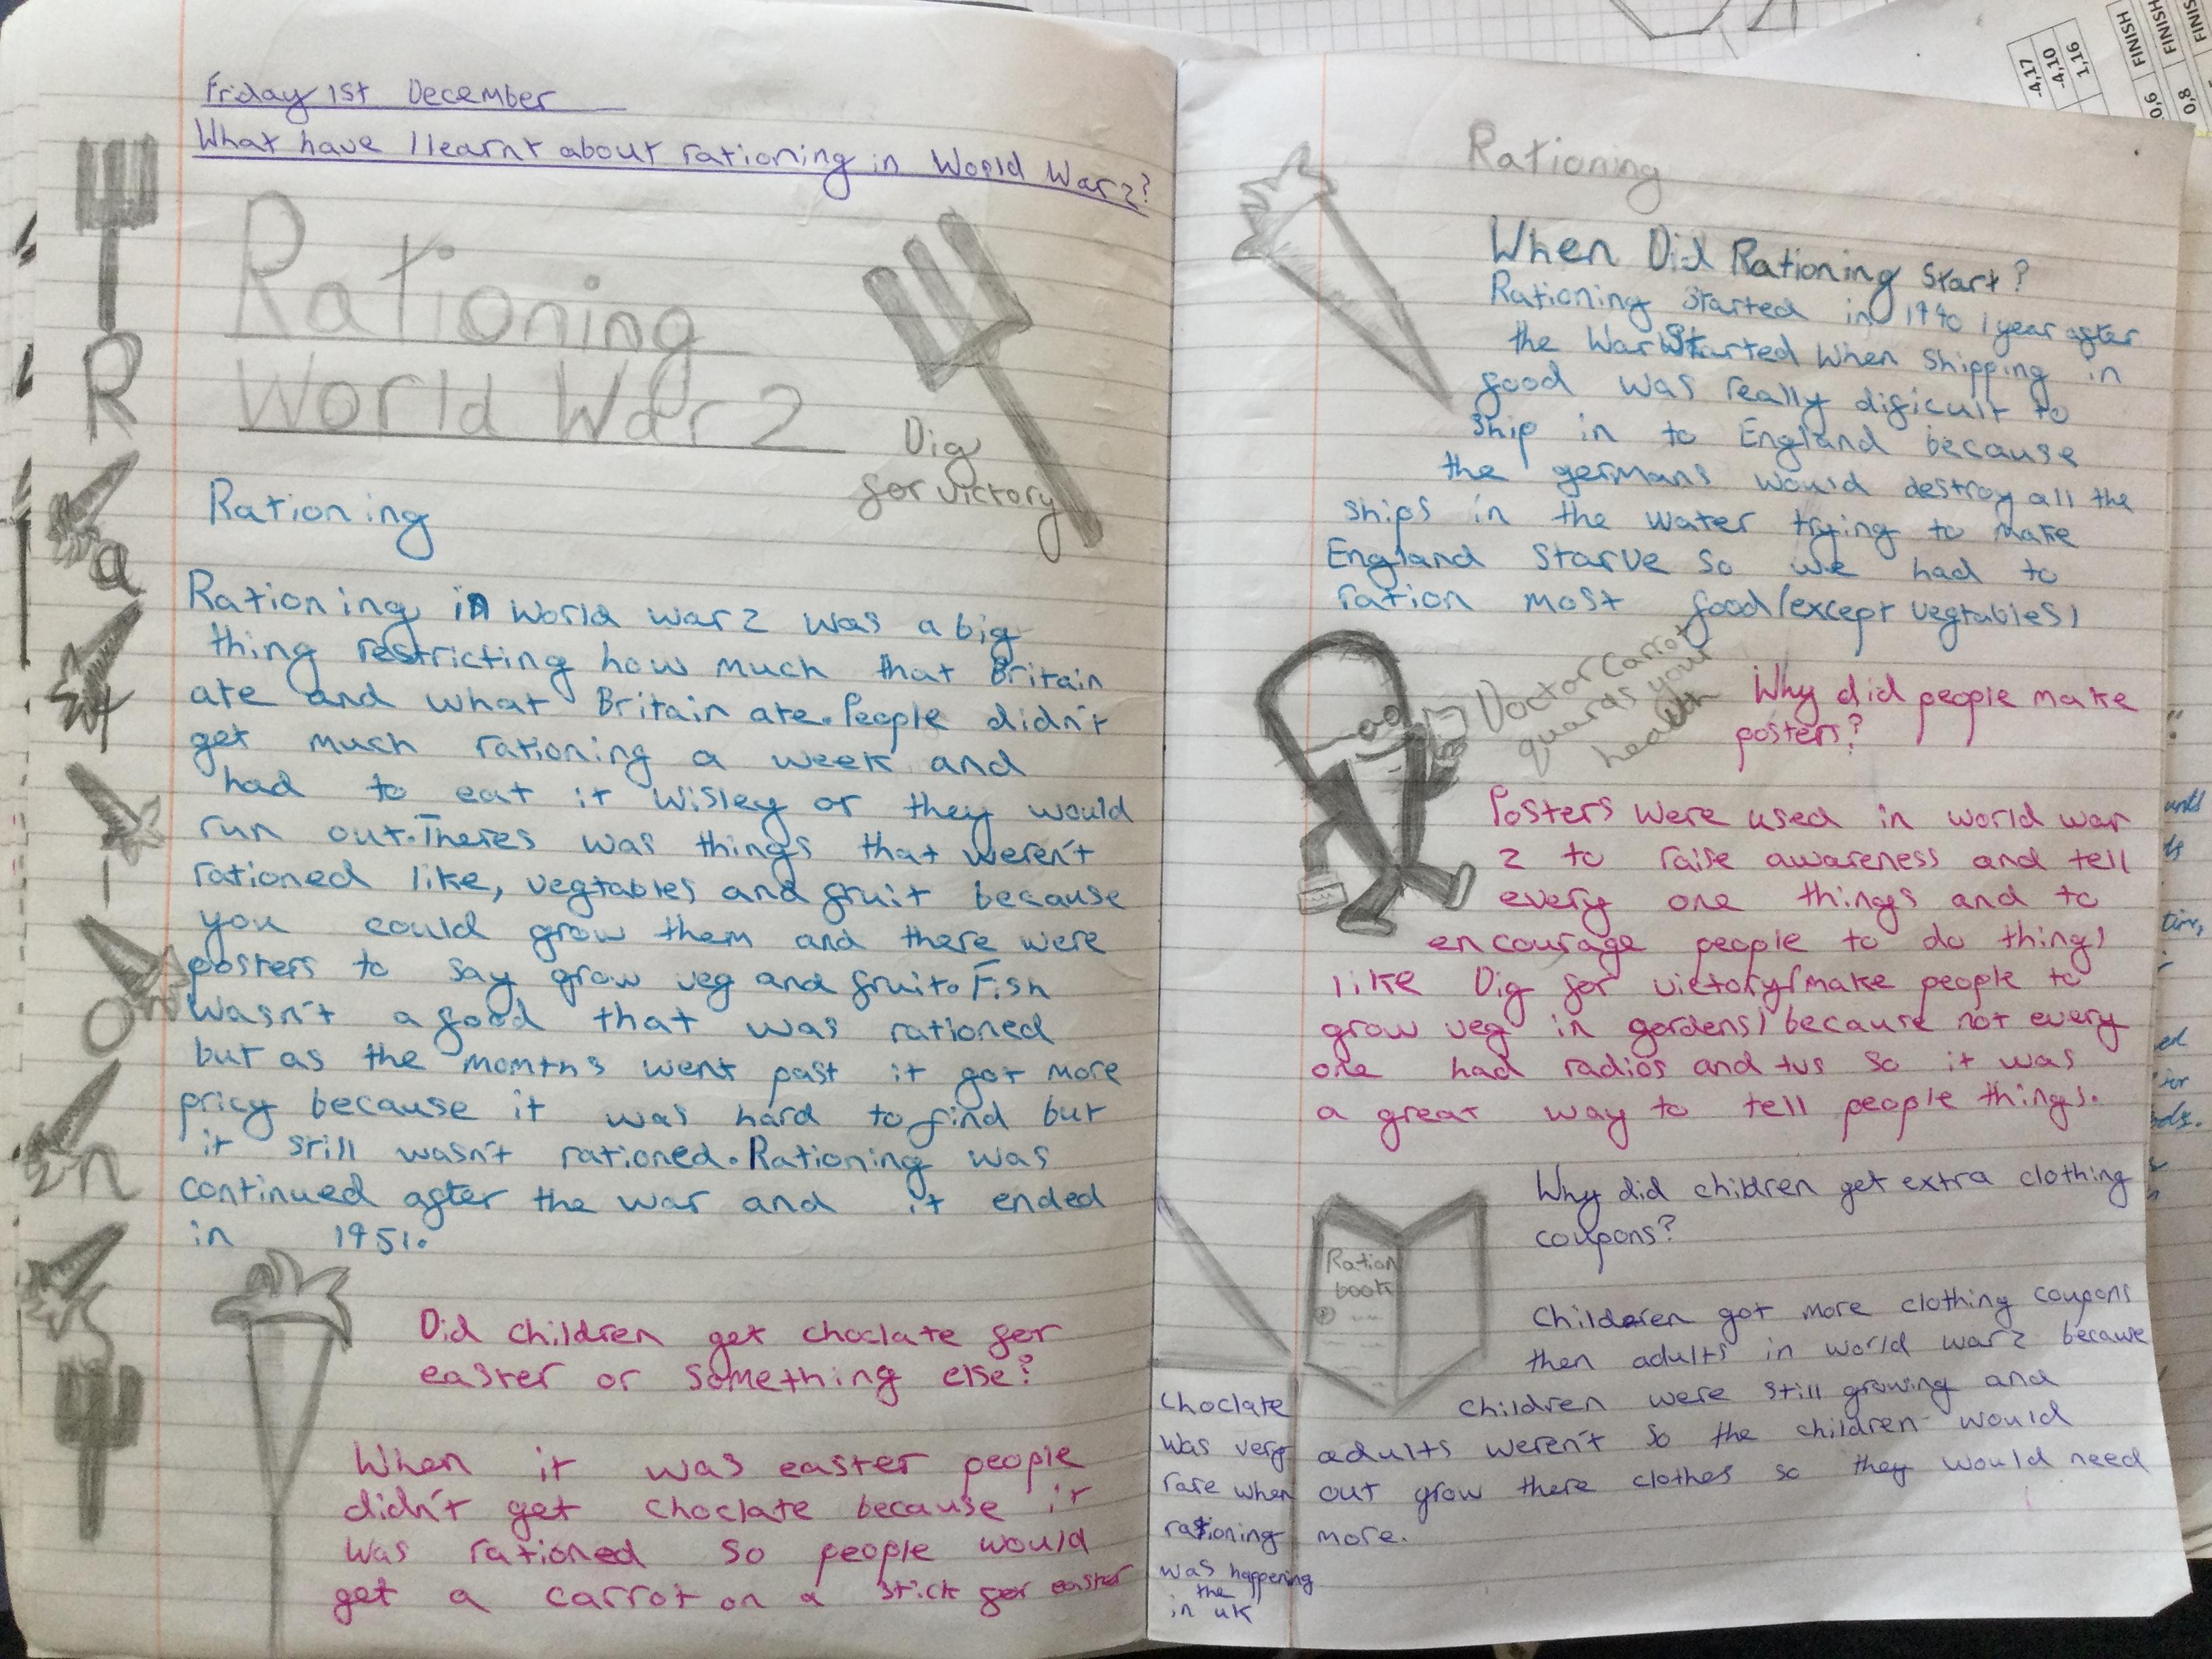 Friday 1st December
What have I learnt about rationing in World War 2?
Rationing
World War 2
Dig
for victory
R
a
t
i
o
n
Rationing
Rationing in World war 2 was a big
thing restricting how much that Britain
ate and what Britain ate. People didn't
get much rationing a week and
had to eat it wisley or they would
run out. Theres was things that weren't
rationed like, vegtables and fruit because
you could grow them and there were
posters to say grow veg and fruit. Fish
wasn't a food that was rationed
but as the months went past it got more
pricy because it was hard to find but
it still wasn't rationed. Rationing was
continued after the war and it ended
in 1951.
Did children get choclate for
easter or something else?
When it was easter people
didn't get choclate because it
was rationed so people would
get a carrot on a stick for easter
Rationing
When Did Rationing Start?
Rationing started in 1940 1 year after
the War Started When Shipping in
food was really dificult to
ship in to England because
the germans would destroy all the
ships in the water trying to make
England starve so we had to
ration most food (except vegtables)
Doctor Carrot
guards your
health
Why did people make
posters?
Posters were used in world war
2 to raise awareness and tell
every one things and to
encourage people to do things
like Dig for victory (make people to
grow veg in gardens) because not every
one had radios and tvs so it was
a great way to tell people things.
Why did children get extra clothing
coupons?
Ration
book
Children got more clothing coupons
then adults in world war 2 because
children were still growing and
adults weren't so the children would
out grow there clothes so they would need
more.
Choclate
was very
rare when
rationing
was happening
in the uk
-4,17
-4,10
1,16
FINISH
FINISH
0,6
0,8